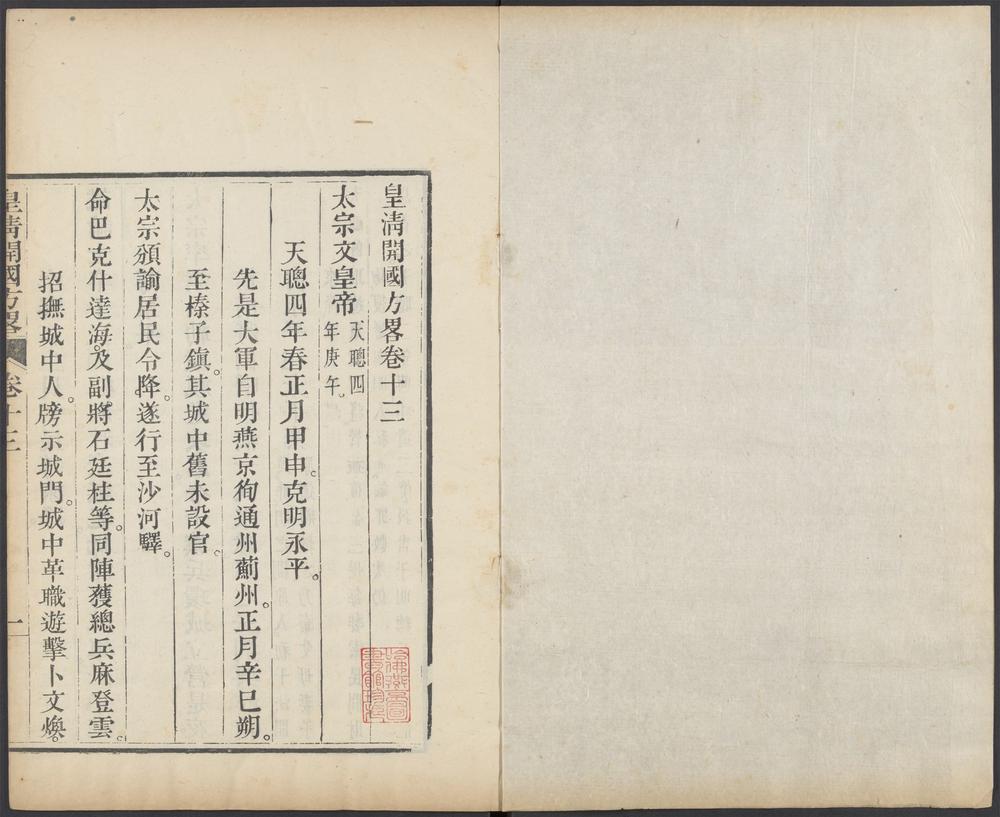 皇淸開國方畧卷十三
太宗文皇帝 天聰四年庚午。
天聰四年春正月甲申。克明永平。
先是大軍自明燕京徇通州薊州。正月辛巳朔。
至榛子鎮。其城中舊未設官。
太宗頒諭居民令降。遂行至沙河驛。
命巴克什達海。及副將石廷柱等。同陣獲總兵麻登雲。
招撫城中人。牓示城門。城中革職遊擊卜文煥。
皇淸開國方畧 卷十三 一